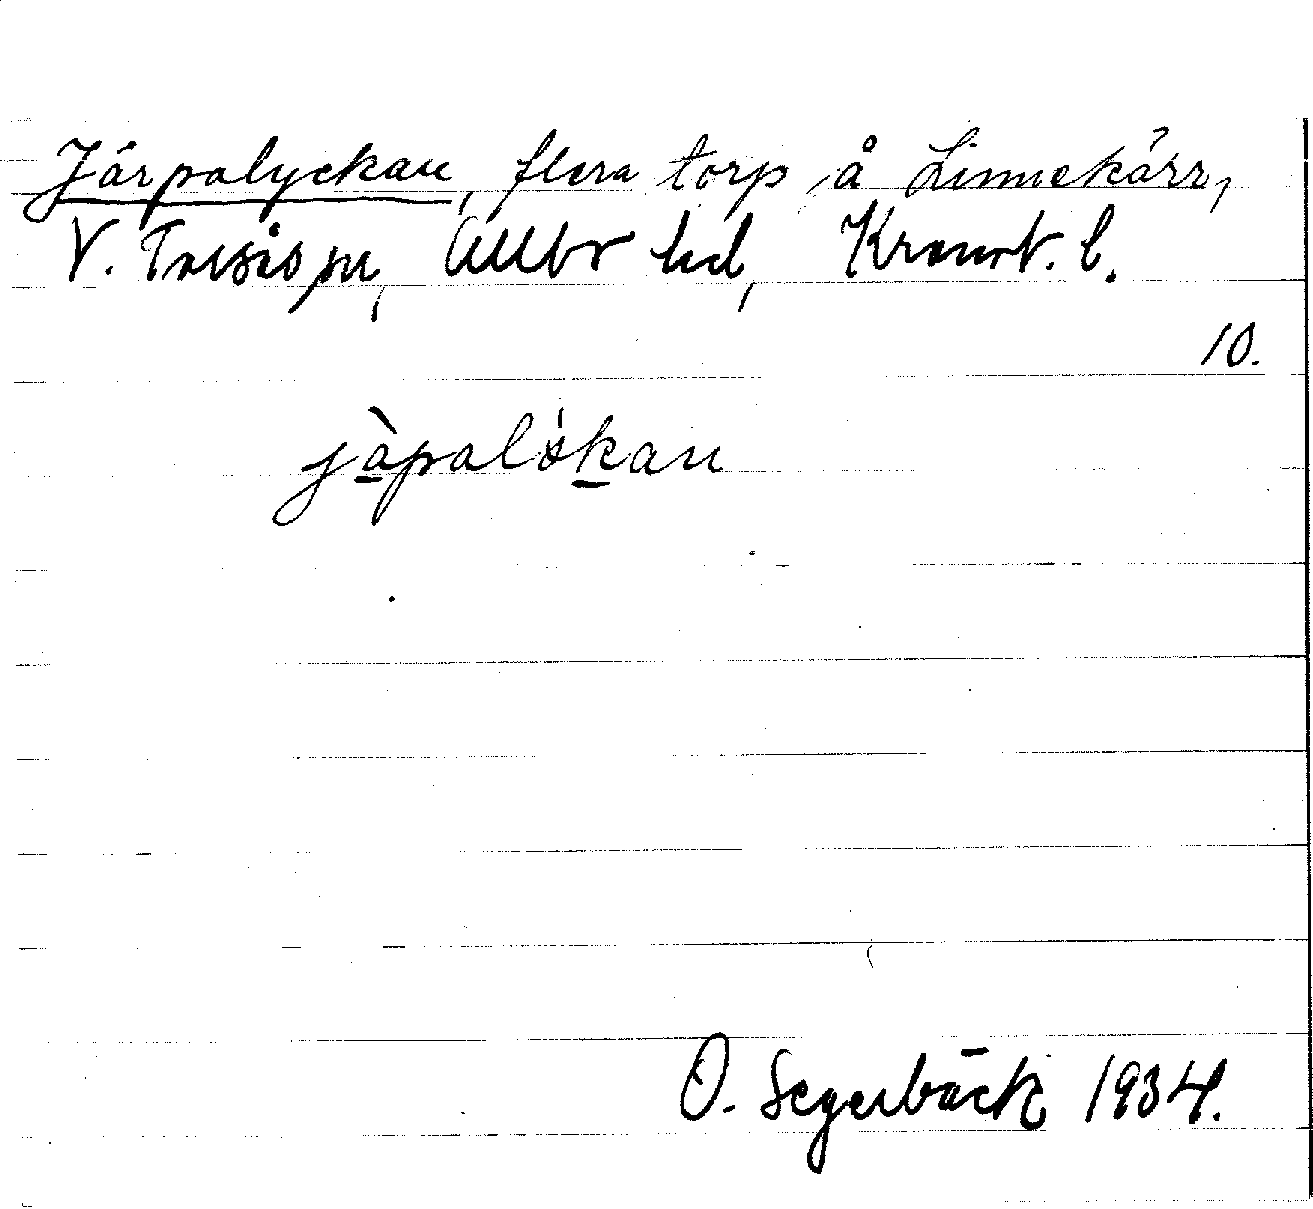 Järpalyckan, flera torp å Linnekärr,
V. Torsås sn, Allbo hd, Kronob. l.
10.
jàpaló̀kan
O. Segerbäck 1934.